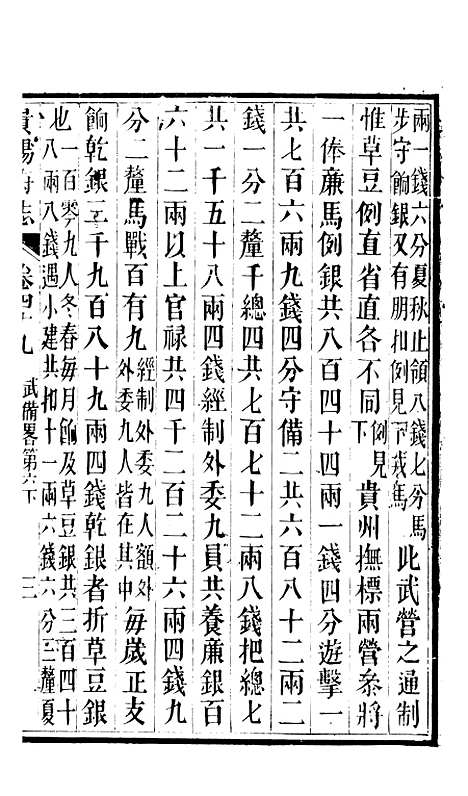 兩一錢六分夏秋止領八錢七分馬
步守餉銀又有朋扣例見下裁馬
此武營之通制
惟草豆例直省直各不同
例見
下
貴州撫標兩營叅將
一俸廉馬例銀共八百四十四兩一錢四分遊擊一
共七百六兩九錢四分守備二共八十二兩二
錢一分二釐千總四共七百七十二兩八錢把總七
共一千五十八兩四錢經制外委九員共養廉銀百
六十二兩以上官祿共四千二百二十六兩四錢九
分二釐馬戰百有九
經制外委九人額外
外委九人皆在其中
每歲正支
餉乾銀三千九百八十九兩四錢乾銀者折草豆銀
也
一百零九人冬春每月餉及草豆銀共三百四十
八兩八錢遇小建共扣十一兩六錢六分三釐夏
貴陽府志
卷四十九
武備畧第六下
三